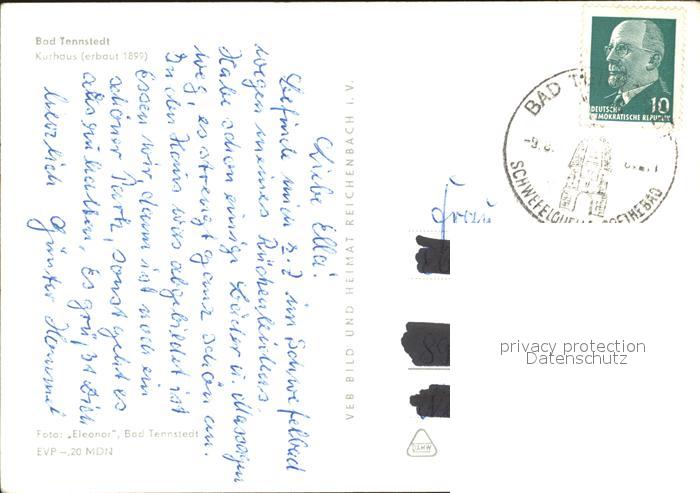 Bad Tennstedt
Kurhaus (erbaut 1899)
Liebe Ella!
Befinde mich z. Z im Schwefelbad
wegen meines Rückenleidens.
Habe schon einige Bäder u. Massagen
weg, es strengt ganz schön an.
In den Haus was abgebildet ist
Essen wir dann ist noch ein
schöner Park, sonst geht es
auszuhalten, Es grüßt Dich
herzlich Günter
Foto: „Eleonor", Bad Tennstedt
EVP –,20 MDN
VEB BILD UND HEIMAT REICHENBACH I. V.
DEUTSCHE
DEMOKRATISCHE REPUBLIK
10
BAD
SCHWEFELQUELLE GOETHEBAD
Frau
privacy protection
Datenschutz